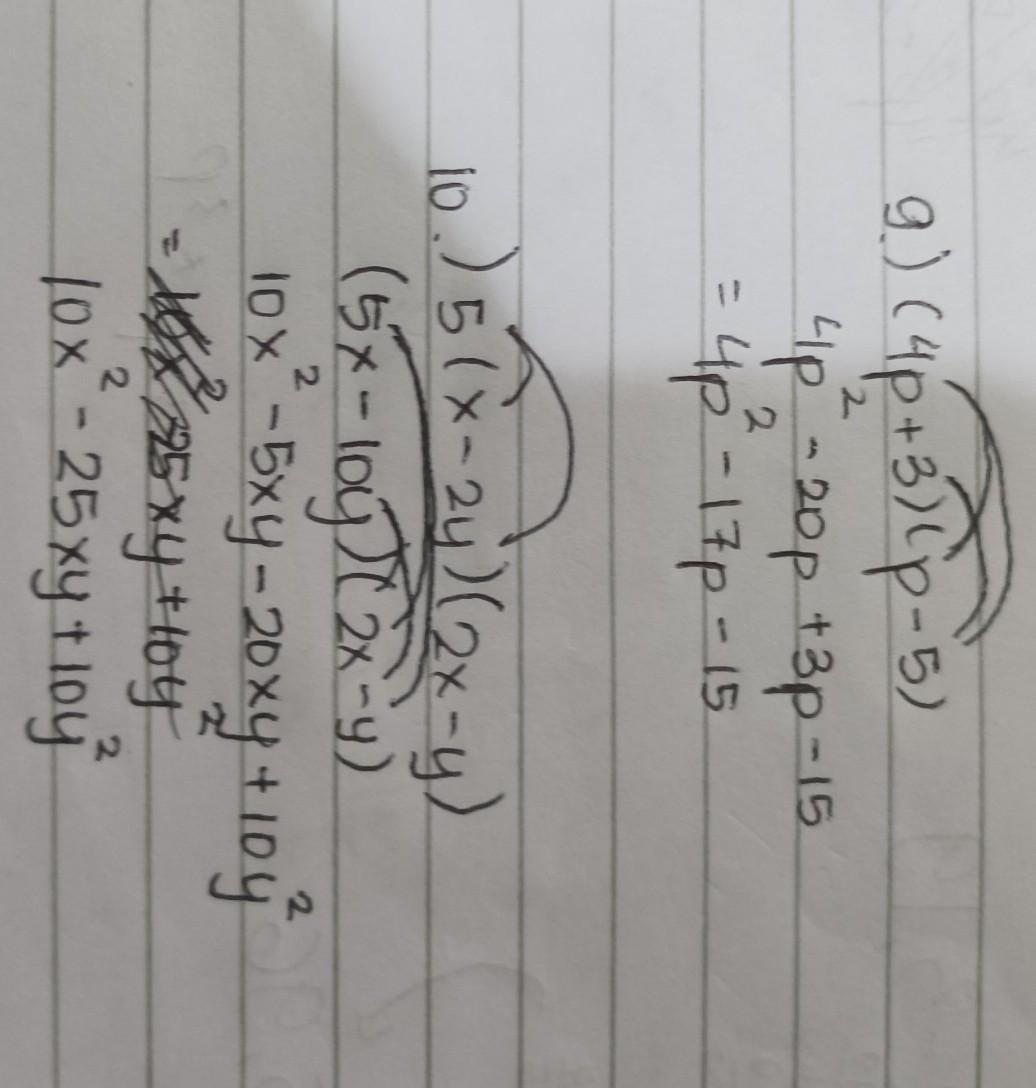 9.) (4p+3)(p-5)
4p² - 20p + 3p - 15
= 4p² - 17p - 15
10.) 5(x-2y)(2x-y)
(5x-10y)(2x-y)
10x² - 5xy - 20xy + 10y²
= 10x² 25xy + 10y²
10x² - 25xy + 10y²